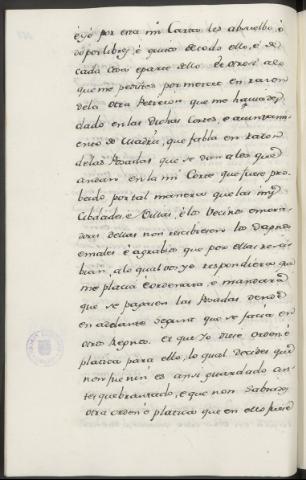 è yo por esta mi Carta les absuelbo, è
dò por libres, è quitos de todo ello, è de
cada cosa è parte dello. Et otrosi à lo
que me pedistes por merced en razon
dela otra Peticion, que me haviades
dado en las dichas Cortes, è ayuntami-
ento de Madrid, que fabla en razon
delas Posadas que se dan à los que
andan en la mi Corte que fuese pro-
beido por tal manera que las mis
Cibdades, è Villas, è los Vecinos è mora-
dores dellas non recibiesen los dapnos
è males è agrabios que por ellas reci-
bian, à lo qual vos yo respondiera que
me placia è ordenara, è mandara
que se pagasen las Posadas dende
en adelante segunt que se facia en
otros Regnos. Et que yo diese orden è
platica para ello, lo qual decides que
non fué nin es ansi guardado an-
tes quebrantado, è que non sabiades
otra orden è platica que en ello fuese